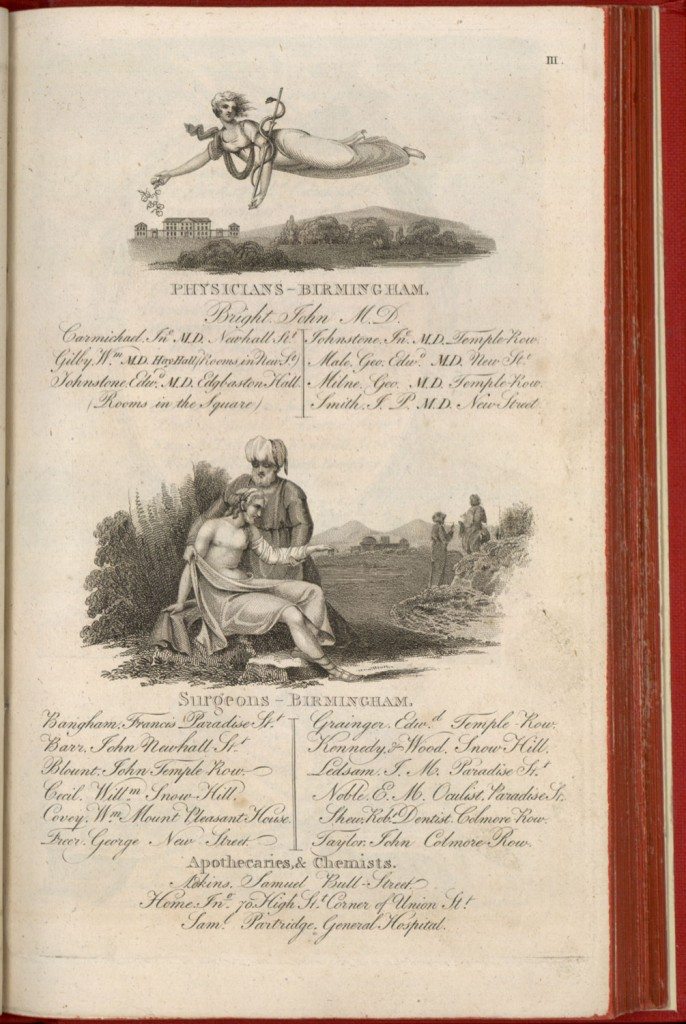 III.
PHYSICIANS - BIRMINGHAM.
Bright, John M.D.
Carmichael, Jnº M.D. Newhall St.
Gilby, Wm M.D. Hay Hall, (Rooms in New St)
Johnstone, Edwd M.D. Edgbaston Hall
(Rooms in the Square)
Johnstone, Jnº M.D. Temple Row
Male, Geo. Edwd M.D. New St.
Milne, Geo. M.D. Temple Row
Smith, J. P. M.D. New Street
Surgeons - BIRMINGHAM.
Bangham, Francis Paradise St.
Barr, John Newhall St.
Blount, John Temple Row
Cecil, Willm Snow Hill
Covey, Wm Mount Pleasant House
Freer, George New Street
Grainger, Edwd Temple Row.
Kennedy & Wood, Snow Hill.
Ledsam, J. M. Paradise St.
Noble, E. M. Oculist, Paradise St.
Shew, Robt Dentist, Colmore Row.
Taylor, John Colmore Row.
Apothecaries, & Chemists.
Adkins, Samuel Bull-Street
Home, Jnº 70, High St. Corner of Union St.
Saml Partridge, General Hospital.